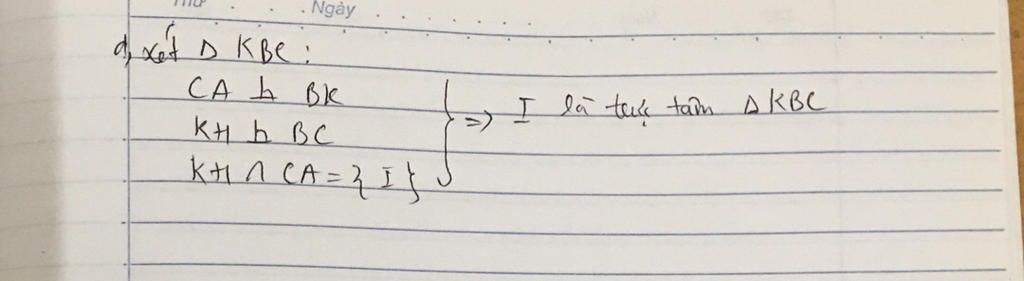 Thứ . . . Ngày . . . .
d, xét Δ KBC :
CA ⊥ BK
KH ⊥ BC
KH ∩ CA = { I }
} => I là trực tâm Δ KBC